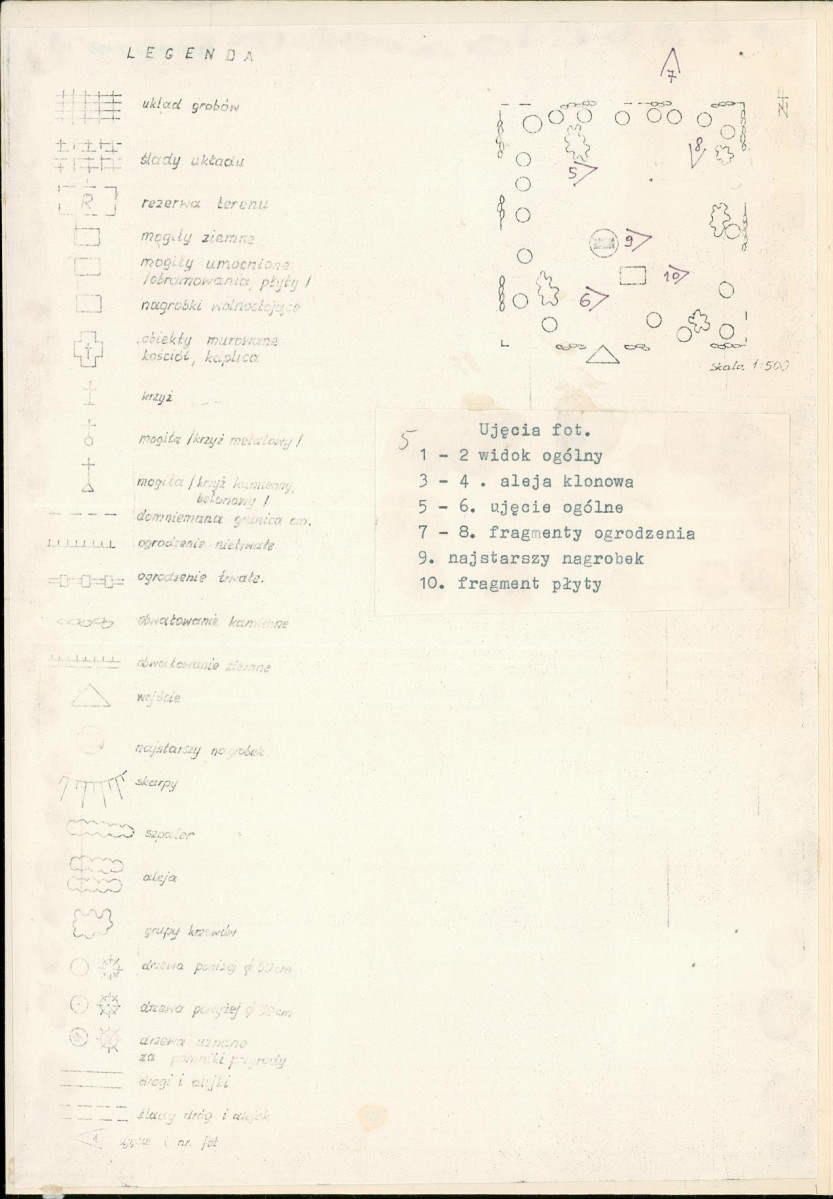 LEGENDA
układ grobów
ślady układu
R
rezerwa terenu
mogiły ziemne
mogiły umocnione
/obramowania, płyty/
nagrobki wolnostojące
obiekty murowane
kościół, kaplica
krzyż
mogiła /krzyż metalowy/
mogiła /krzyż kamienny,
betonowy/
domniemana granica cm.
ogrodzenie nietrwałe
ogrodzenie trwałe.
obwałowanie kamienne
obwałowanie ziemne
wejście
najstarszy nagrobek
skarpy
szpaler
aleja
grupy krzewów
drzewa poniżej ϕ 50 cm
drzewa powyżej ϕ 50 cm
drzewa uznane
za pomniki przyrody
drogi i alejki
ślady dróg i alejek
1
ujęcie i nr. fot.
7
N
8
5
9
10
6
Skala. 1:500
5
Ujęcia fot.
1 - 2 widok ogólny
3 - 4 . aleja klonowa
5 - 6. ujęcie ogólne
7 - 8. fragmenty ogrodzenia
9. najstarszy nagrobek
10. fragment płyty